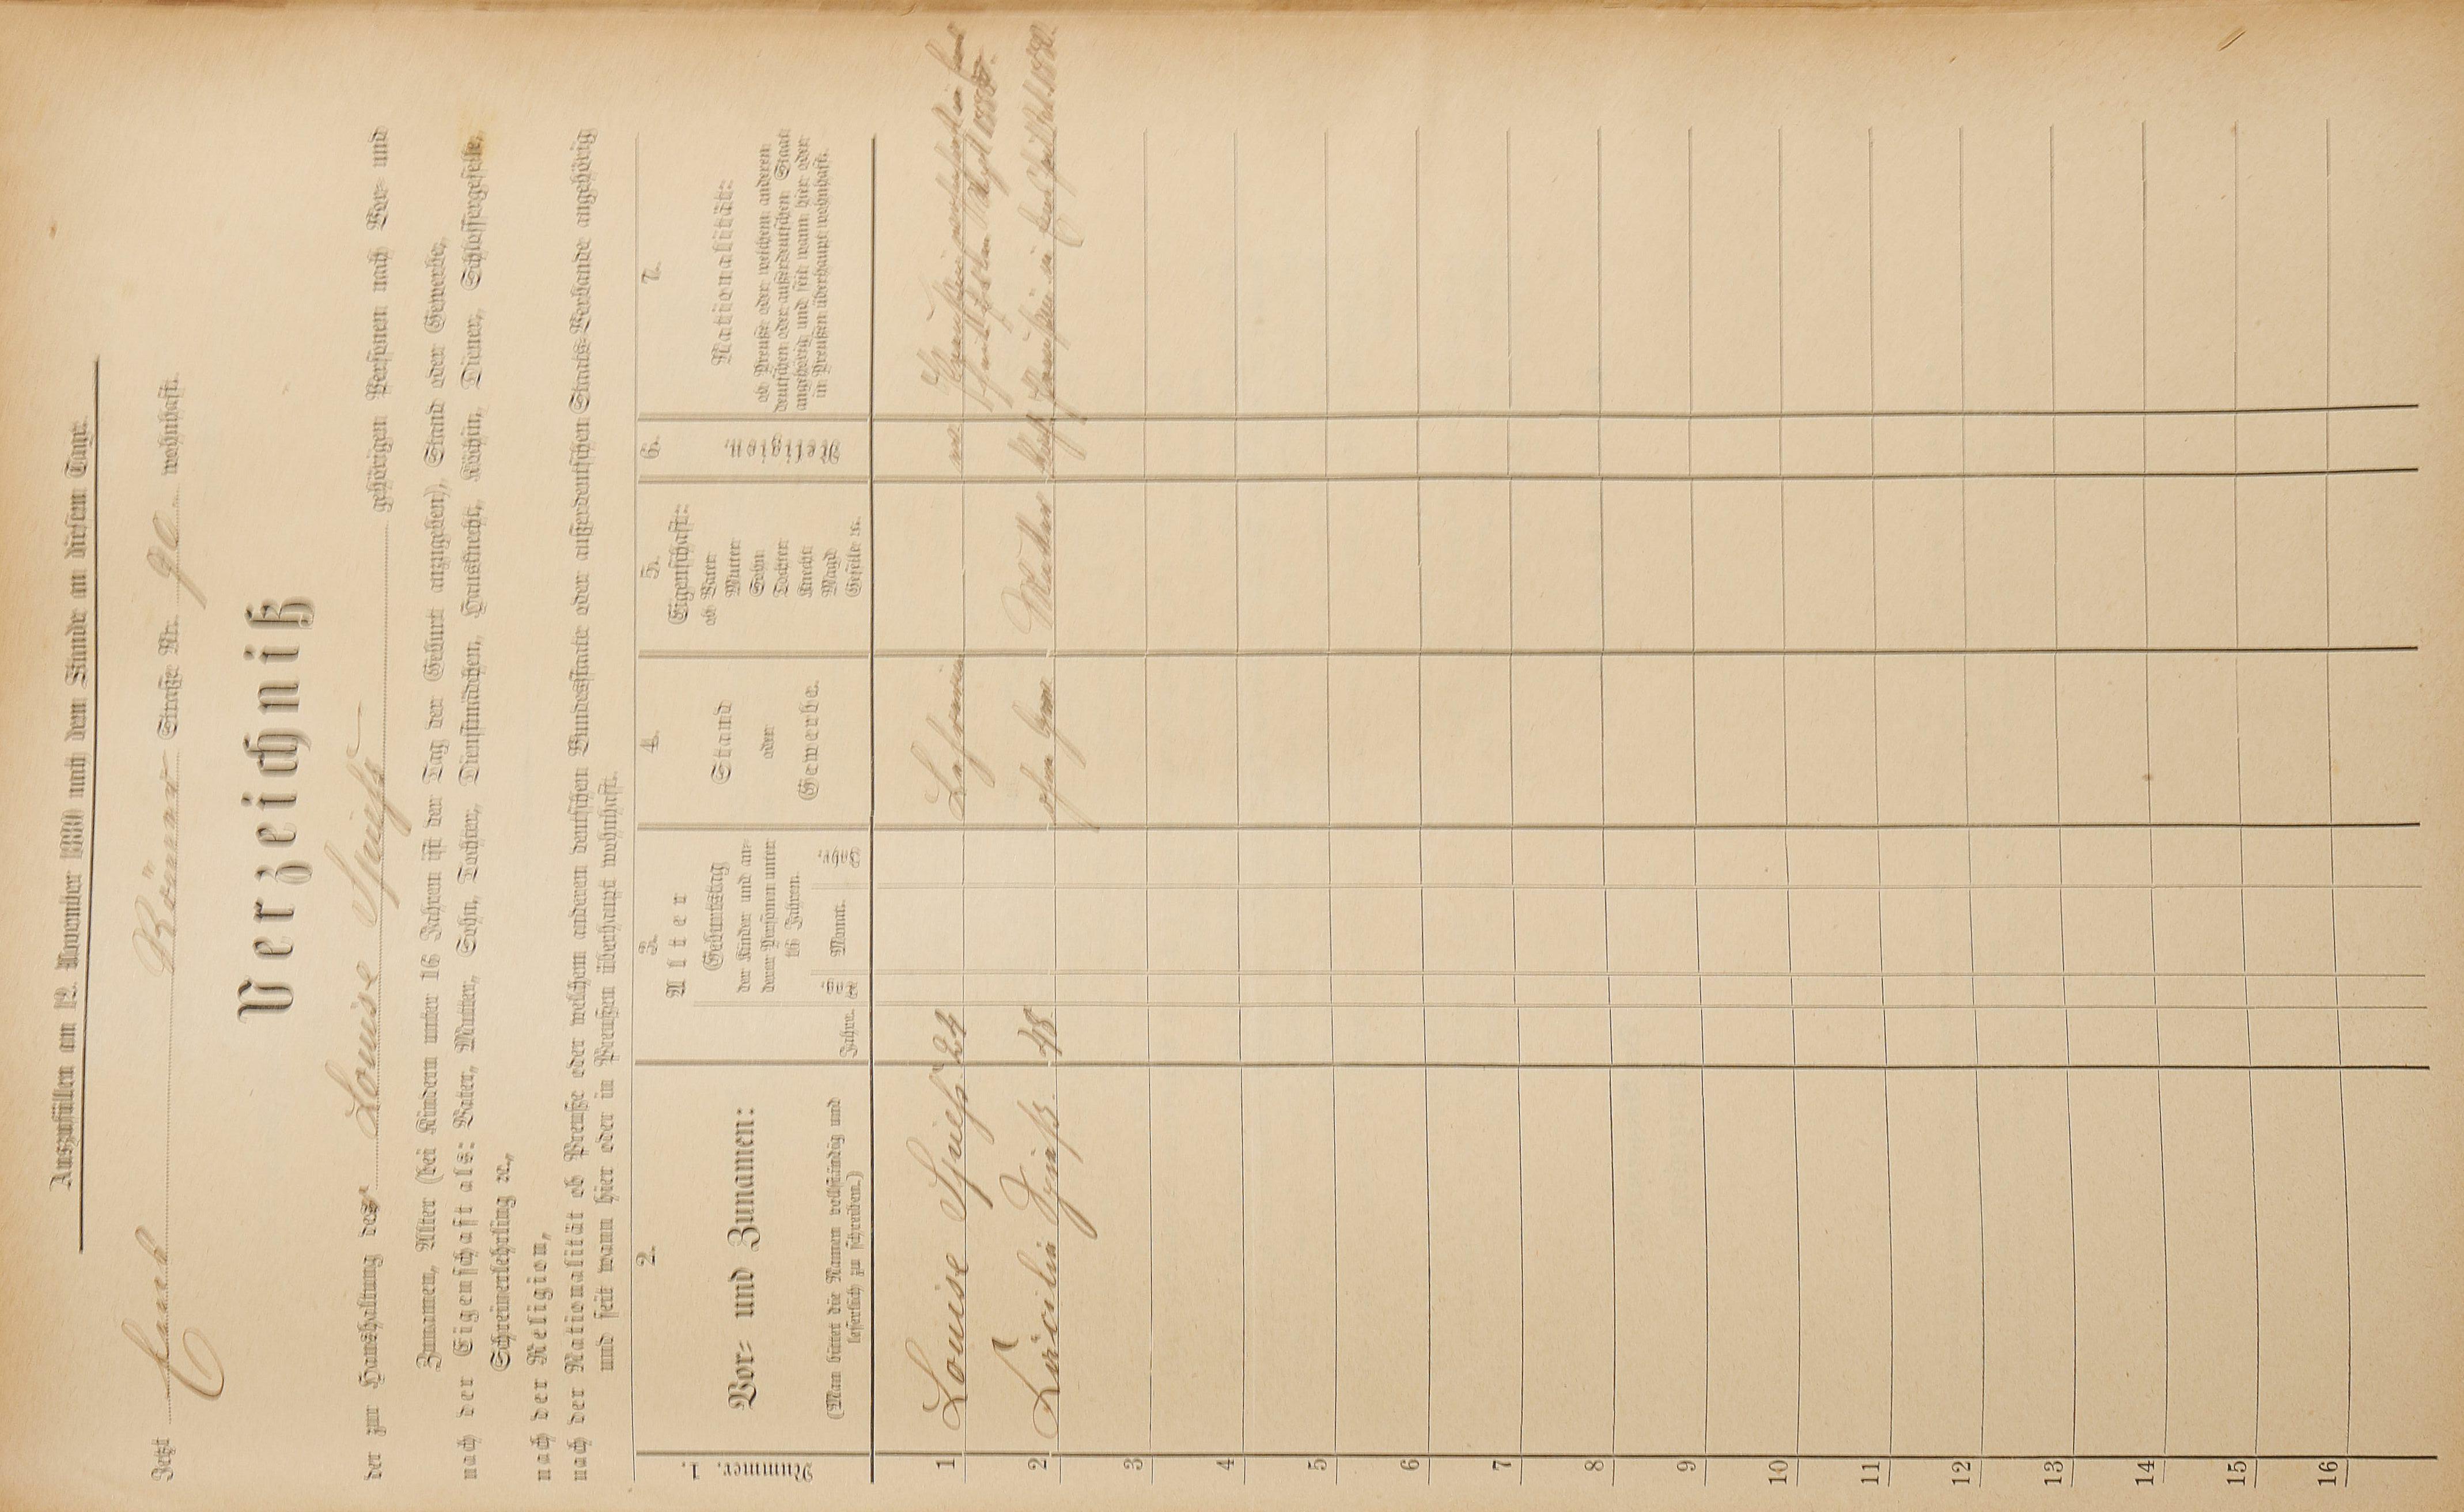 Auszufüllen am 12. November 1880 nach dem Stande an diesem Tage.
Jetzt Römer Straße Nr. 90 wohnhaft.
Verzeichniß
der zur Haushaltung der Louise Spieß gehörigen Personen nach Vor- und
Zunamen, Alter (bei Kindern unter 16 Jahren ist der Tag der Geburt anzugeben), Stand oder Gewerbe,
nach der Eigenschaft als: Vater, Mutter, Sohn, Tochter, Dienstmädchen, Hausknecht, Köchin, Diener, Schlossergeselle,
Schreinerlehrling ꝛc.,
nach der Religion,
nach der Nationalität ob Preuße oder welchem anderen deutschen Bundesstaate oder außerdeutschen Staats-Verbande angehörig
und seit wann hier oder in Preußen überhaupt wohnhaft.
1.
Nummer.
2.
Vor- und Zunamen:
(Man bittet die Namen vollständig und
leserlich zu schreiben.)
3.
Alter
Jahre.
Geburtstag
der Kinder und an-
derer Personen unter
16 Jahren.
Tag
Monat.
Jahr.
4.
Stand
oder
Gewerbe.
5.
Eigenschaft:
ob Vater
Mutter
Sohn
Tochter
Knecht
Magd
Geselle ꝛc.
6.
Religion.
7.
Nationalität:
ob Preuße oder welchem anderen
deutschen oder außerdeutschen Staat
angehörig und seit wann hier oder
in Preußen überhaupt wohnhaft.
1 Louise Spieß 24 Lehrerin
2 Spieß 48 ohne Gew. Mutter
3
4
5
6
7
8
9
10
11
12
13
14
15
16